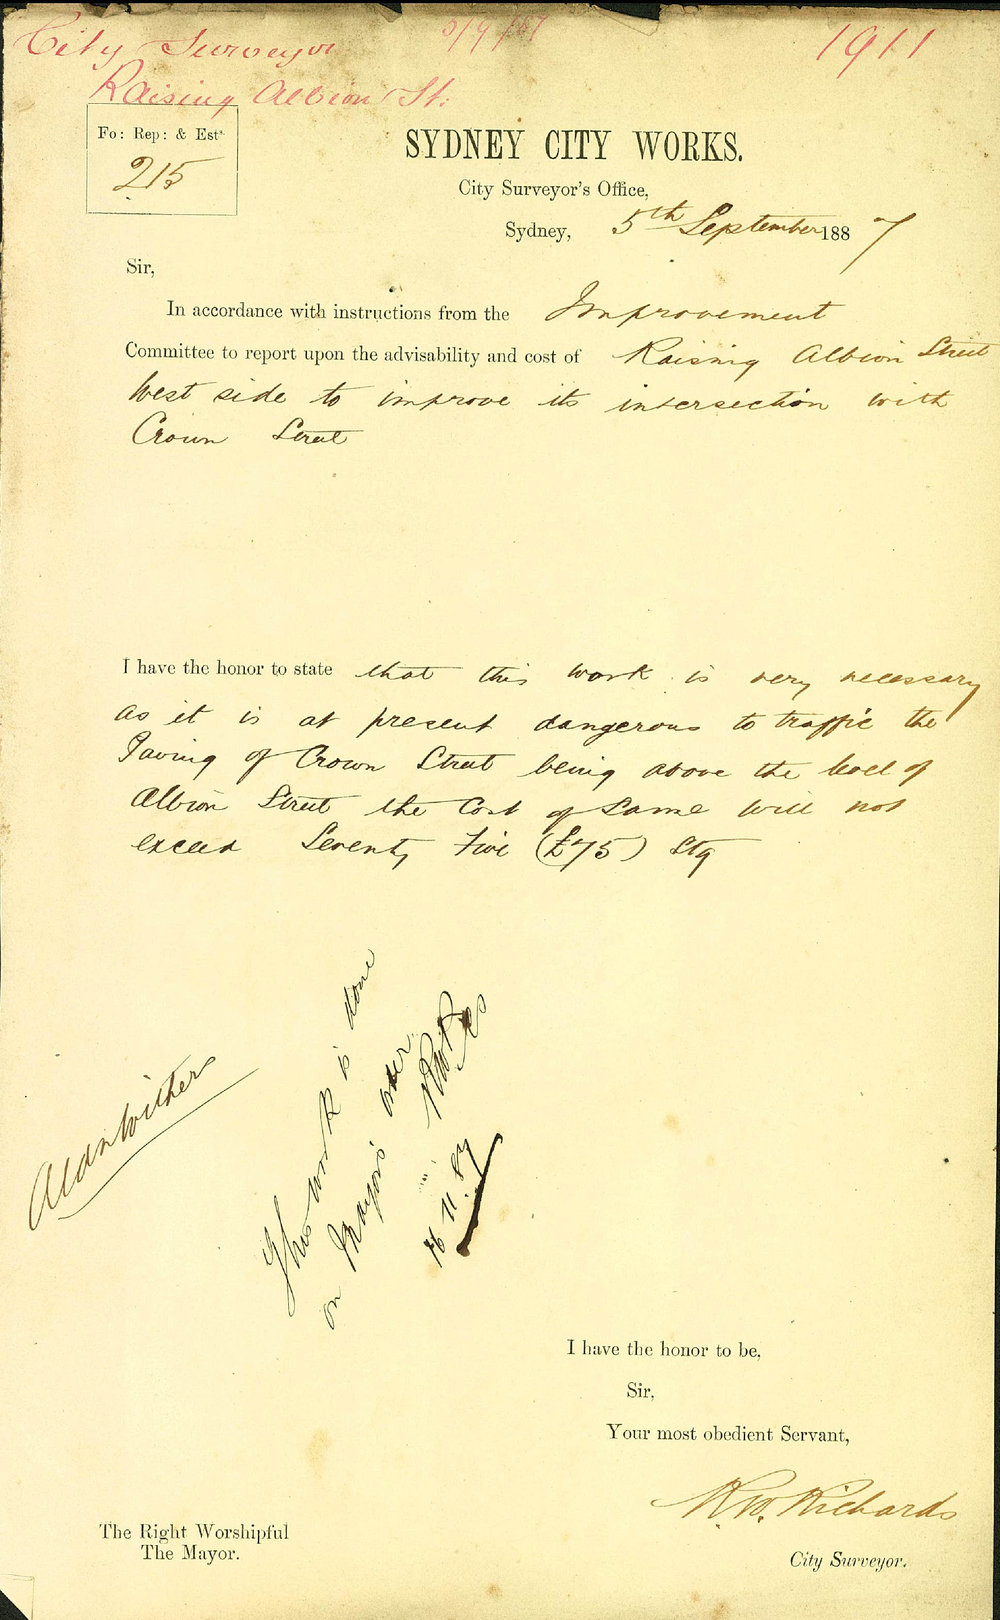 City Surveyor
5/9/87
1911
Raising Albion St.
Fo: Rep: & Est.
215
SYDNEY CITY WORKS.
City Surveyor's Office,
Sydney, 5th September 1887
Sir,
In accordance with instructions from the Improvement
Committee to report upon the advisability and cost of Raising Albion Street
West side to improve its intersection with
Crown Street
I have the honor to state that this work is very necessary
as it is at present dangerous to traffic the
Paving of Crown Street being above the level of
Albion Street the Cost of Same will not
exceed Seventy Five (£75) Stg
This work is done
on Mayor's order
16.11.87
I have the honor to be,
Sir,
Your most obedient Servant,
R.W. Richards
City Surveyor.
The Right Worshipful
The Mayor.